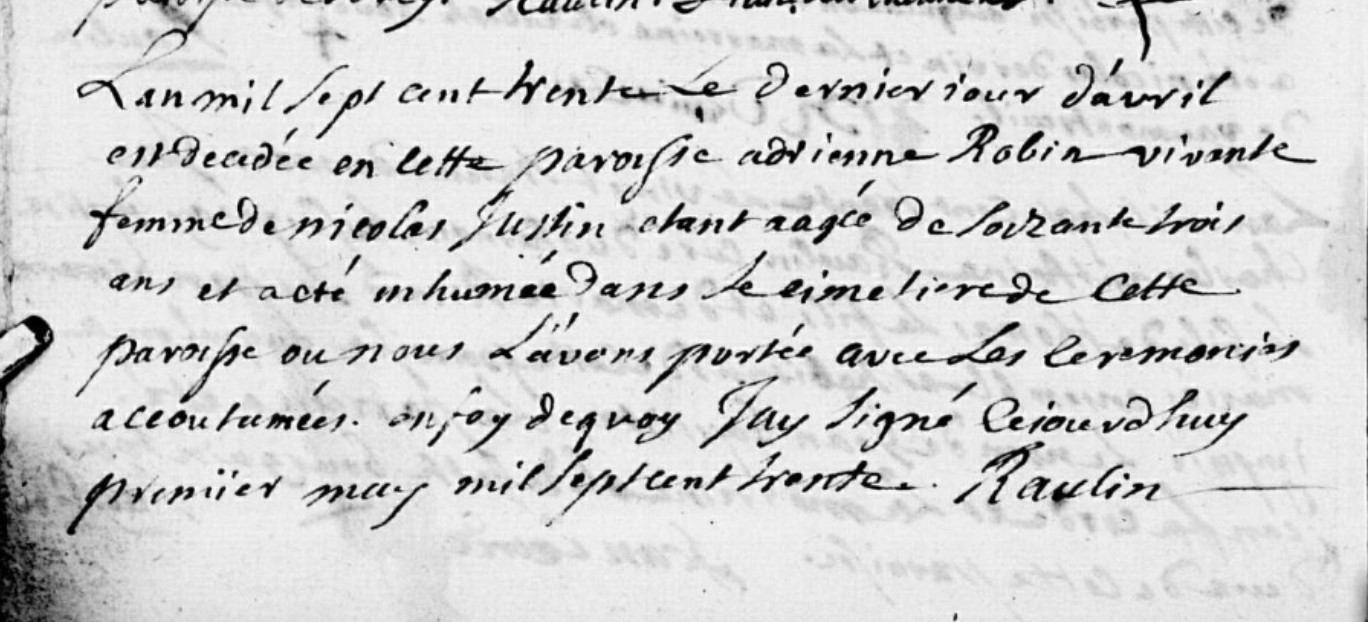 Lan mil sept cent trente Le dernier iour d'avril
est decedée en cette paroisse adrienne Robin vivante
femme de nicolas Justin etant aagée de soizante trois
ans et a eté inhumée dans le cimetiere de cette
paroisse ou nous L'avons portée avec Les ceremonies
accoutumées. en foy dequoy Jay signé cejourdhuy
premier may mil sept cent trente. Raulin